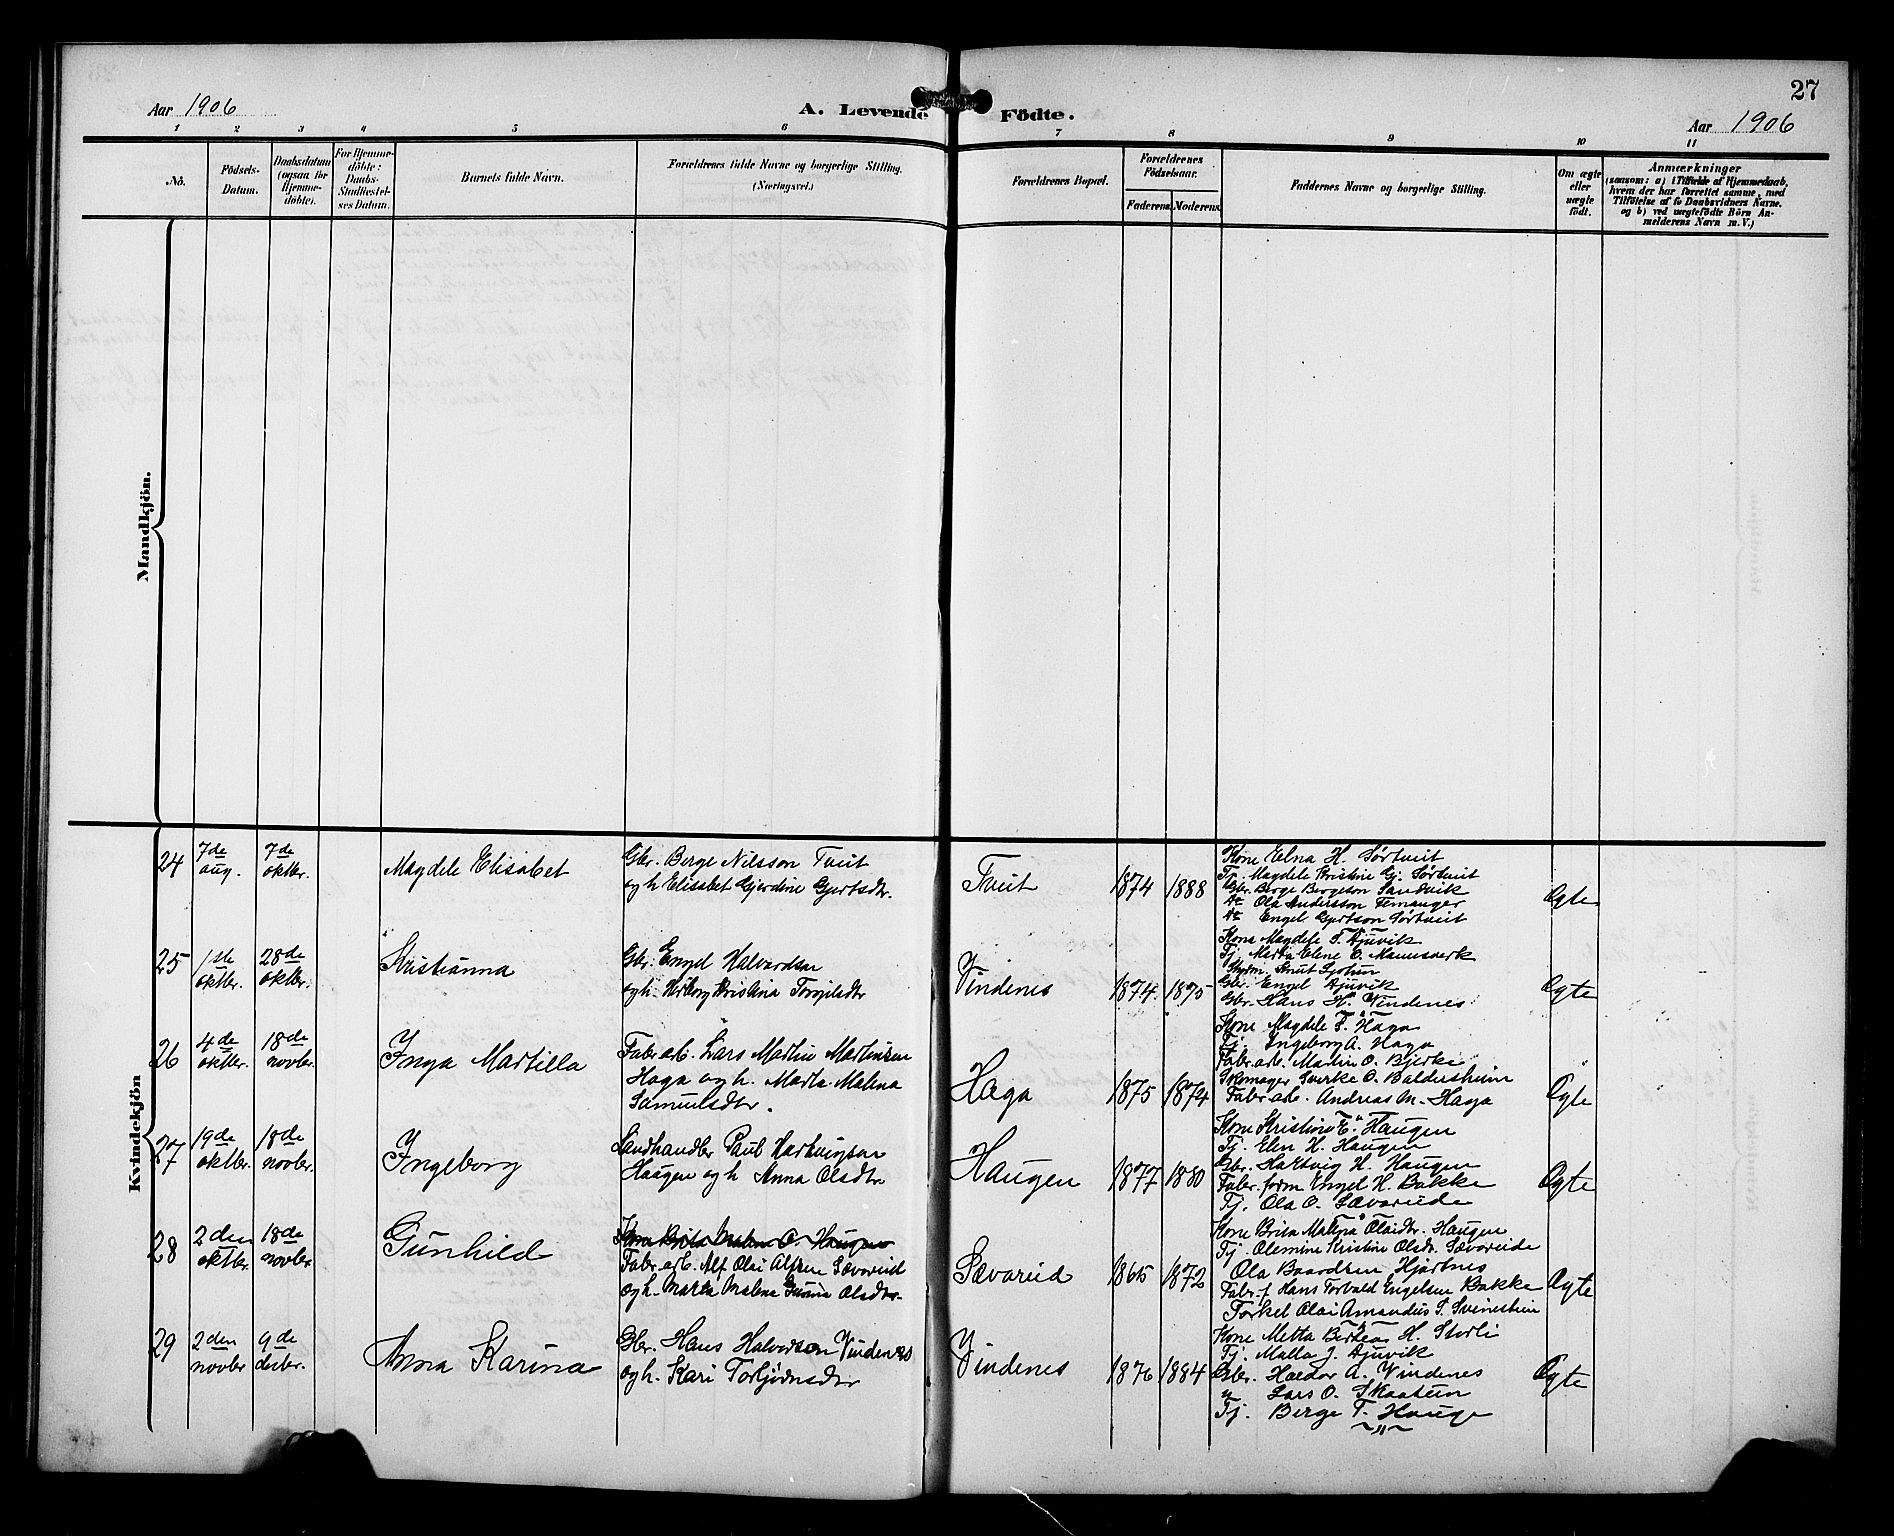 27
Aar 1906
A. Levende Födte.
Aar 1906
1 2 3 4 5 6 7 8 9 10 11
No.
Födsels-
Datum.
Daabsdatum
(ogsaa for
Hjemme-
döbte).
For Hjemme-
döbte:
Daabs-
Stadfæstel-
ses Datum.
Barnets fulde Navn.
Forældrenes fulde Navne og borgerlige Stilling.
(Næringsvei.)
Forældrenes Bopæl.
Forældrenes
Födselsaar.
Faderens. Moderens.
Faddernes Navne og borgerlige Stilling.
Om ægte
eller
uægte
födt.
Anmærkninger
(saasom: a) i Tilfælde af Hjemmedaab,
hvem der har forrettet samme, med
Tilföielse af to Daabsvidners Navne,
og b) ved uægtefödte Börn An-
melderens Navn m. V.)
Mandkjön.
Kvindekjön
24
7de
aug.
7de
oktbr.
Magdele Elisabet
Gbr. Berge Nilsson Tveit
og h. Elisabet Gjerdine Gjertsdtr.
Tveit
1874 1888
Kone Elna H. Sørtveit
Tj. Magdele Kristine Gj. Sørtveit
Gbr. Berge Bergeson Sandvik
do Ola Andersson Femanger
do Engel Gjertson Sørtveit
Ægte
25
1ste
oktbr.
28de
oktbr.
Kristianna
Gbr. Engel Halvardson
og h. Herborg Kristina Torgilsdtr
Vindenes
1874. 1875
Kone Magdele T. Djuvik
Tj. Marta Elene O.
Knut
Gbr. Engel Djuvik
Gbr. Hans H. Vindenes
Ægte
26
4de
oktbr.
18de
novbr.
Inga Martilla
Fabr. arb. Lars Martin Martinsen
Haga og h. Marta Malina
Samuelsdtr.
Haga
1875 1874
Kone Magdele T. Haga
Tj. Ingeborg A. Haga
Fabr. arb. Martin O. Bjerke
Skomager Sverke O. Baldersheim
Fabr. arb. Andreas M. Haga
Ægte
27
19de
oktbr.
18de
novbr.
Ingeborg
Landhandler Paul Hartvigsen
Haugen og h. Anna Olsdtr
Haugen
1877 1880
Kone Kristine E. Haugen
Tj. Elen H. Haugen
Gbr. Hartvig H. Haugen
Fabr. form Engel H. Bakke
Tj. Ola O. Sævareide
Ægte
28
2den
oktbr.
18de
novbr.
Gunhild
Kone Brita Malene O. Haugen
Fabr. arb. Alf Olai Alfsen Sævareid
og h. Marta Malena Olsdtr.
Sævareid
1865 1872
Kone Brita Olaidtr. Haugen
Tj. Olemine Kristine Olsdr. Sævareide
Ola Baardsen Hjartnes
Fabr. f. Hans Torvald Engelsen Bakke
Torkel Olai Amandus T. Svinestein
Ægte
29
2den
novbr
9de
desbr.
Anna Karina
Gbr. Hans Halvardson Vindenes
og h. Kari Torbjørnsdtr
Vindenes
1876 1884
Kone Metta Berteas H. Storli
Tj. Malla J. Djuvik
Gbr. Haldor A. Vindenes
" Lars O. Skaatun
Tj. Berge T. Hauge
Ægte